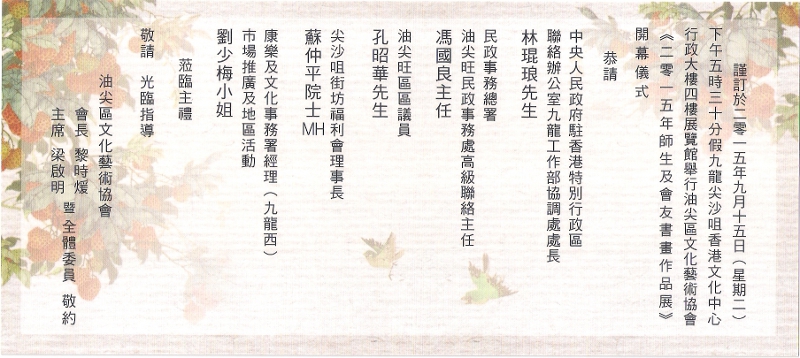 謹訂於二零一五年九月十五日（星期二）
下午五時三十分假九龍尖沙咀香港文化中心
行政大樓四樓展覽館舉行油尖區文化藝術協會
《二零一五年師生及會友書畫作品展》
開幕儀式
恭請
中央人民政府駐香港特別行政區
聯絡辦公室九龍工作部協調處處長
林琨琅先生
民政事務總署
油尖旺民政事務處高級聯絡主任
馮國良主任
油尖旺區區議員
孔昭華先生
尖沙咀街坊福利會理事長
蘇仲平院士MH
康樂及文化事務署經理（九龍西）
市場推廣及地區活動
劉少梅小姐
蒞臨主禮
敬請 光臨指導
油尖區文化藝術協會
會長 黎時煖
主席 梁啟明
暨 全體委員 敬約